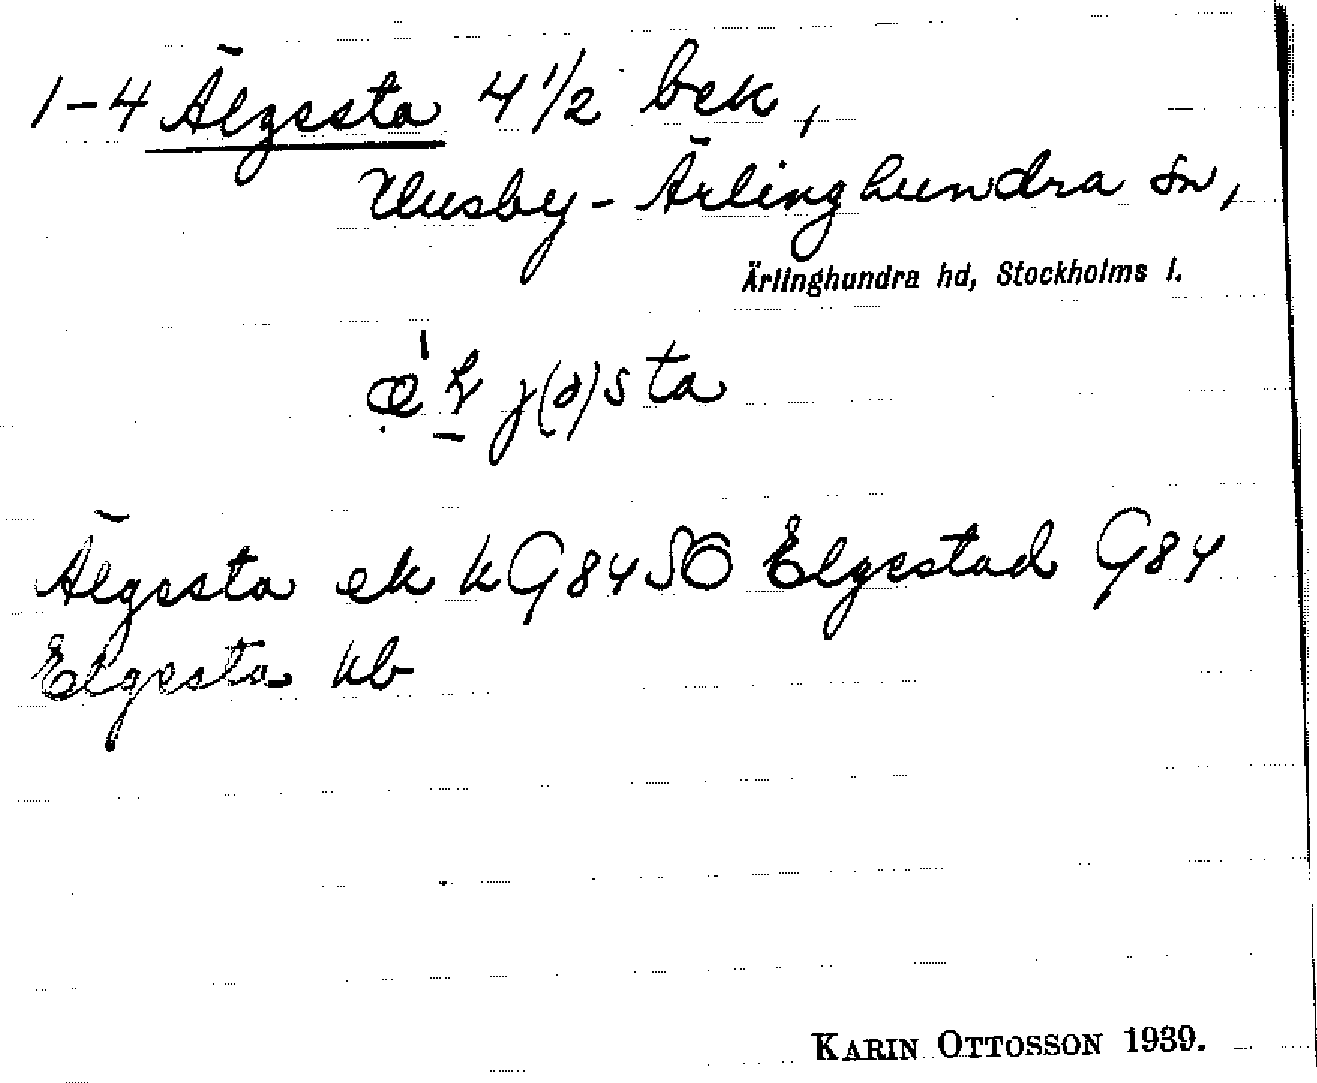 1-4 Älgesta 4 1/2 bek,
Husby-Ärlinghundra sn,
Ärlinghundra hd, Stockholms l.
j(ə)sta
Älgesta ek k G84 SO Elgestad G84
Elgesta kb
KARIN OTTOSSON 1939.